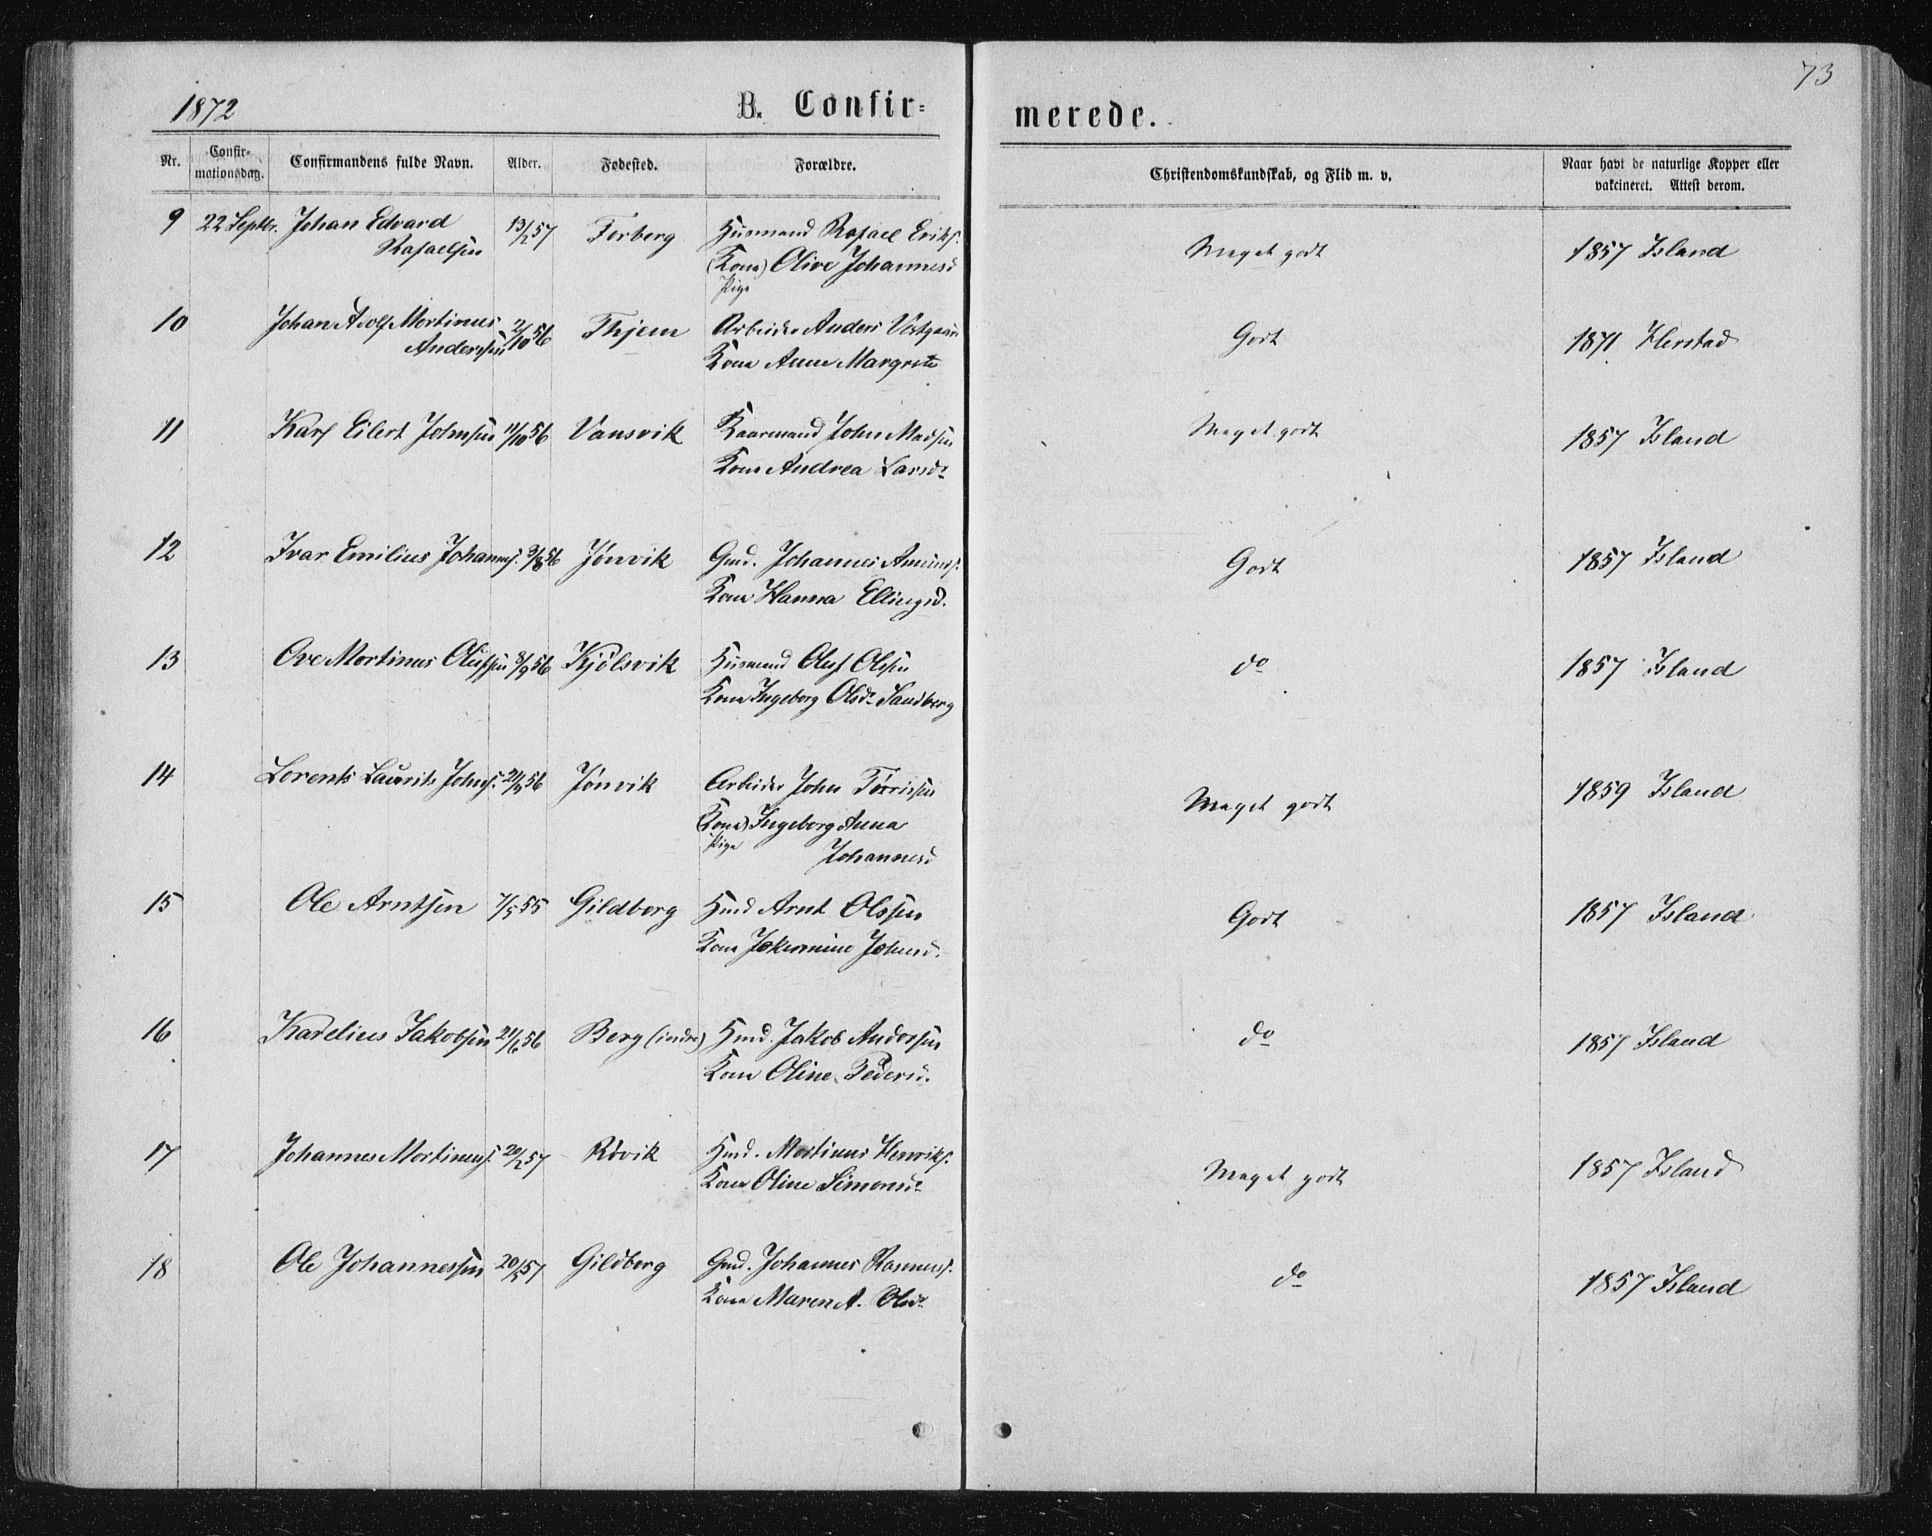 73
1872 B. Confir=
merede.
Nr. Confir-mationsdag. Confirmandens fulde Navn. Alder. Fødested. Forældre. Christendomskundskab, og Flid m. v. Naar havt de naturlige Kopper eller vakcineret. Attest derom.
9 22 Septbr. Johan Edvard 13/2 57 Forberg Husmand Rafael Eriks. Meget godt 1857 Island
Rafaelsen (Kone) Olive Johannesd
Pige
10 Johan Adolf Mortinus 2/10 56 Thjem Arbeider Anders Godt 1871
Anderssen Kone Anne Margrete
11 Karl Eilert Johnsen 11/10 56 Vansvik Kaarmand John Madsen Meget godt 1857 Island
Kone Andrea Larsdr
12 Ivar Emilius Johannes. 9/8 56 Jønvik Gmd. Johannes Amunds. Godt 1857 Island
Kone Hanna Ellingsd.
13 Ove Mortinus Olufsen 8/9 56 Kjølsvik Husmand Oluf Olsen do 1857 Island
Kone Ingeborg Olsdr Sandberg
14 Lorents Laurits Johns. 56 Jønvik Arbeider John Torrissen Meget godt 1859 Island
(Kone) Ingeborg Anna
Pige Johannesd
15 Ole Arntsen 7/5 55 Gildberg Hmd Arnt Olssen Godt 1857 Island
Kone Jakomine Johnsd.
16 Karelius Jakobsen 21/6 56 Berg (indre) Hmd. Jakob Anderssen do 1857 Island
Kone Oline Pedersd.
17 Johannes Mortinus. 20/2 57 Rövik Hmd. Mortinus Henriks. Meget godt 1857 Island
Kone Oline Simonsdr
18 Ole Johannessen 20/5 57 Gildberg Gmd. Johannes Rasmuss. do 1857 Island
Kone Maren A. Olsdr